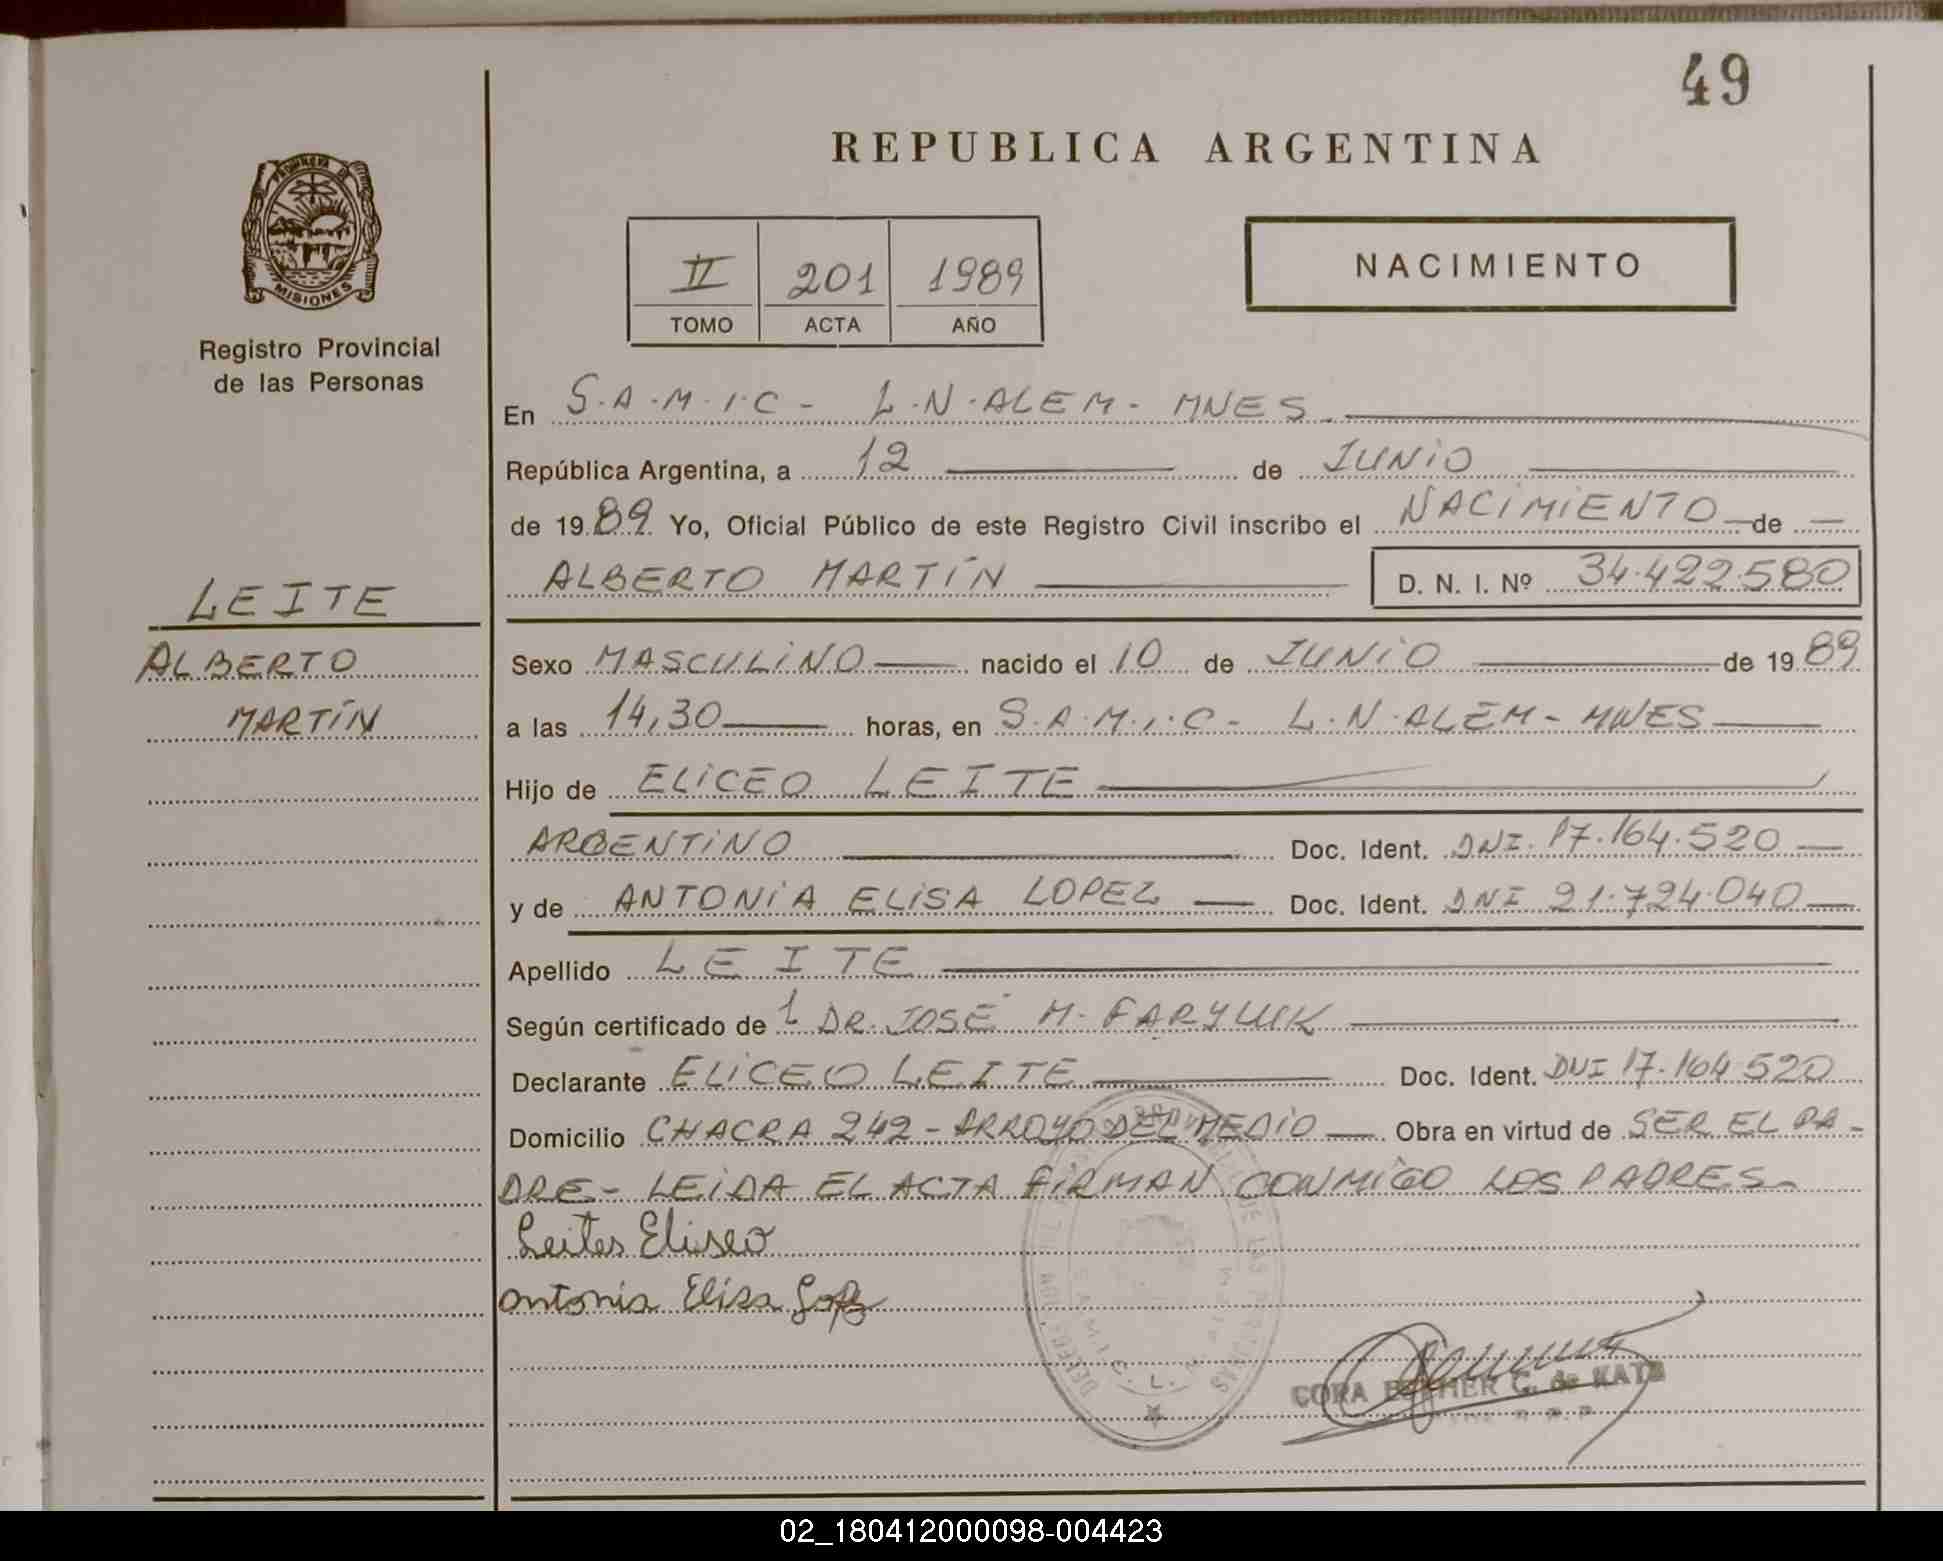 49
REPUBLICA ARGENTINA
PROVINCIA DE
MISIONES
Registro Provincial
de las Personas
II 201 1989
TOMO ACTA AÑO
NACIMIENTO
En S.A.M.I.C - L.N.ALEM - MNES.
República Argentina, a 12 de JUNIO
de 1989 Yo, Oficial Público de este Registro Civil inscribo el NACIMIENTO de
ALBERTO MARTÍN D. N. I. Nº 34.422.580
LEITE
ALBERTO
MARTÍN
Sexo MASCULINO nacido el 10 de JUNIO de 1989
a las 14,30 horas, en S.A.M.I.C - L.N.ALEM - MNES
Hijo de ELICEO LEITE
ARGENTINO Doc. Ident. DNI. 17.164.520
y de ANTONIA ELISA LOPEZ Doc. Ident. DNI 21.724.040
Apellido LEITE
Según certificado de 1 DR. JOSÉ M. FARYLUK
Declarante ELICEO LEITE Doc. Ident. DNI 17.164.520
Domicilio CHACRA 242 - ARROYO DEL MEDIO Obra en virtud de SER EL PA-
DRE - LEIDA EL ACTA FIRMAN CONMIGO LOS PADRES.
Leites Eliseo
Antonia Elisa Lopez
CORA ESTHER G. de KATZ
02_180412000098-004423